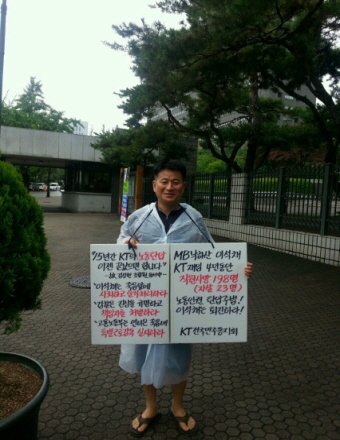 "15년간 KT의 노동탄압
이젠 끝났으면 합니다"
"이석채는 죽음앞에
사죄하고 숨겨하나하라
"검찰은 진실을 규명하고
책임자를 처벌하라
"고용노동부는 연이은 죽음에
특별근로감독 실시하라.
MB낙하산 이석채
KT재임 4년동안
직원사망 198명
(자살 23명)
노동인권 탄압주범!
이석채는 퇴진하라!
KT전국민주동지회